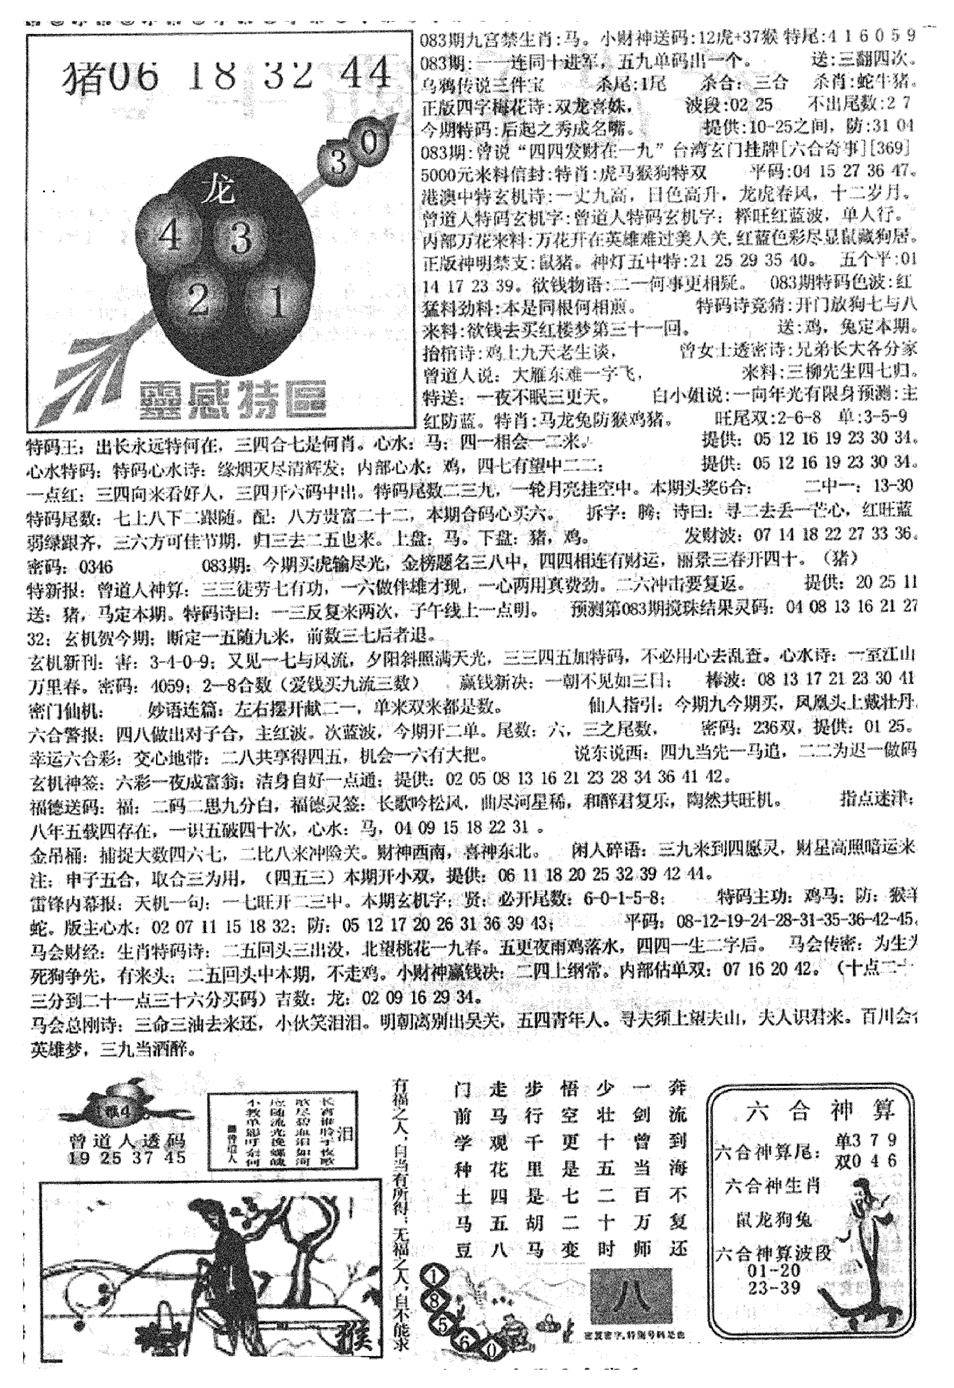 猪06 18 32 44
0
3
龙
4 3
2 1
靈感特區
083期九宫禁生肖:马。小财神送码:12虎+37猴 特尾:4 1 6 0 5 9
083期:一一连同十进军，五九单码出一个。 送:三翻四次。
乌鸦传说三件宝 杀尾:1尾 杀合：三合 杀肖:蛇牛猪。
正版四字梅花诗:双龙喜妹， 波段:02 25 不出尾数:2 7
今期特码:后起之秀成名嘴。 提供:10-25之间，防:31 04
083期:曾说“四四发财在一九”台湾玄门挂牌[六合奇事][369]
5000元来料信封:特肖:虎马猴狗特双 平码:04 15 27 36 47。
港澳中特玄机诗:一丈九高，日色高升，龙虎春风，十二岁月。
曾道人特码玄机字:曾道人特码玄机字：榉旺红蓝波，单人行。
内部万花来料:万花开在英雄难过美人关,红蓝色彩尽显鼠藏狗居。
正版神明禁支:鼠猪。神灯五中特:21 25 29 35 40。 五个平:01
14 17 23 39。欲钱物语:二一何事更相疑。 083期特码色波:红
猛料劲料:本是同根何相煎。 特码诗竞猜:开门放狗七与八
来料:欲钱去买红楼梦第三十一回。 送:鸡，兔定本期。
抬棺诗:鸡上九天老生谈， 曾女士透密诗:兄弟长大各分家
曾道人说：大雁东难一字飞， 来料:三柳先生四七归。
特送：一夜不眠三更天。 白小姐说:一向年光有限身预测:主
红防蓝。特肖:马龙兔防猴鸡猪。 旺尾双:2-6-8 单:3-5-9
特码王；出长永远特何在，三四合七是何肖。心水：马；四一相会一二来。 提供：05 12 16 19 23 30 34。
心水特码：特码心水诗：缘烟灭尽清辉发；内部心水：鸡，四七有望中二二； 提供：05 12 16 19 23 30 34。
一点红：三四向来看好人，三四开六码中出。特码尾数二三九，一轮月亮挂空中。本期头奖6合： 二中一：13-30
特码尾数：七上八下二跟随。配：八方贵富二十二，本期合码心买六。 拆字：腾；诗曰：寻二去丢一芒心，红旺蓝
弱绿跟齐，三六方可佳节期，归三去二五也来。上盘：马。下盘：猪，鸡。 发财波：07 14 18 22 27 33 36。
密码：0346 083期：今期买虎输尽光，金榜题名三八中，四四相连有财运，丽景三春开四十。（猪）
特新报：曾道人神算：三三徒劳七有功，一六做伴雄才现，一心两用真费劲。二六冲击要复返。 提供：20 25 11
送：猪，马定本期。特码诗曰：一三反复来两次，子午线上一点明。 预测第083期搅珠结果灵码：04 08 13 16 21 27
32；玄机贺今期；断定一五随九来，前数三七后者退。
玄机新刊：害：3-4-0-9；又见一七与风流，夕阳斜照满天光，三三四五加特码，不必用心去乱查。心水诗：一室江山
万里春。密码：4059；2—8合数（爱钱买九流三数） 赢钱新决：一朝不见如三日； 棒波：08 13 17 21 23 30 41
密门仙机： 妙语连篇：左右摆开献二一，单来双来都是数。 仙人指引：今期九今期买，凤凰头上戴牡丹。
六合警报：四八做出对子合，主红波。次蓝波，今期开二单。尾数：六，三之尾数， 密码：236双，提供：01 25。
幸运六合彩：交心地带：二八共享得四五，机会一六有大把。 说东说西：四九当先一马追，二二为迟一做码
玄机神签：六彩一夜成富翁；洁身自好一点通；提供：02 05 08 13 16 21 23 28 34 36 41 42。
福德送码：福：二码二思九分白，福德灵签：长歌吟松风，曲尽河星稀，和醉君复乐，陶然共旺机。 指点迷津：
八年五载四存在，一识五破四十次，心水：马，04 09 15 18 22 31 。
金吊桶：捕捉大数四六七，二比八来冲险关。财神西南，喜神东北。 闲人碎语：三九来到四愿灵，财星高照暗运来
注：申子五合，取合三为用，（四五三）本期开小双，提供：06 11 18 20 25 32 39 42 44。
雷锋内幕报：天机一句：一七旺开二三中。本期玄机字：贤：必开尾数：6-0-1-5-8； 特码主功：鸡马；防：猴羊
蛇。版主心水：02 07 11 15 18 32；防：05 12 17 20 26 31 36 39 43； 平码：08-12-19-24-28-31-35-36-42-45。
马会财经：生肖特码诗：二五回头三出没，北望桃花一九春。五更夜雨鸡落水，四四一生二字后。 马会传密：为生为
死狗争先，有来头；二五回头中本期，不走鸡。小财神赢钱决：二四上纲常。内部估单双：07 16 20 42。（十点二十
三分到二十一点三十六分买码）吉数：龙：02 09 16 29 34。
马会总刚诗：三命三油去来还，小伙笑泪泪。明朝离别出吴关，五四青年人。寻夫须上望夫山，夫人识君来。百川会合
英雄梦，三九当酒醉。
曾道人透码
19 25 37 45
泪
长宵谁聆手夜歌
歌尽碧血泪如河
应随流光挽
小教单影呼奈何
曾道人
猴
有福之人，自当有所得；无福之人，自不能求
奔流到海不复还
一剑曾当百万师
少壮十五二十时
悟空更是七二变
步行千里是胡马
走马观花四五八
门前学种土马豆
1
8
5
6
0
八
密复密字,特别号码是也
六合神算
六合神算尾：单3 7 9
双0 4 6
六合神生肖
鼠龙狗兔
六合神算波段
01-20
23-39